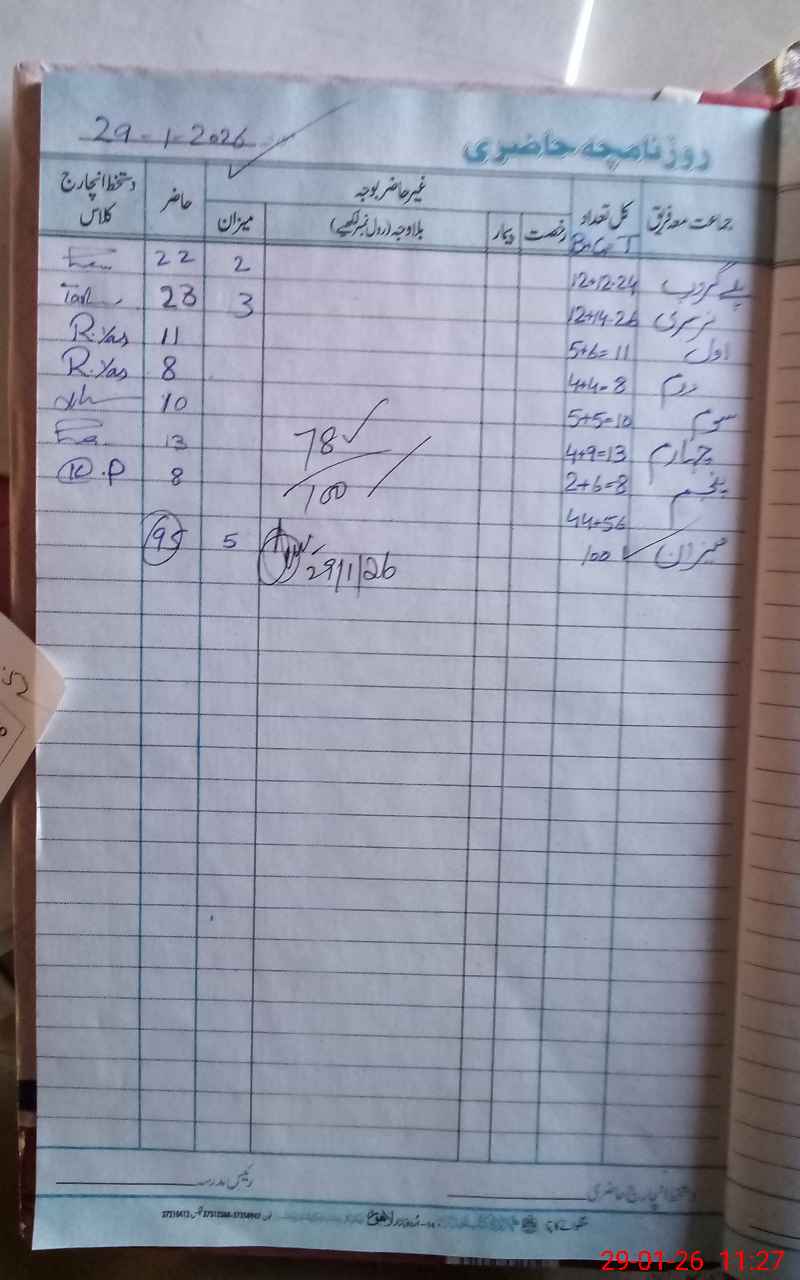 29-1-2026
روزنامچہ حاضری
جماعت معہ فریق
کل تعداد
غیر حاضر بوجہ
حاضر
دستخط انچارج کلاس
رخصت
بیمار
بلاوجہ (رول نمبر لکھیے)
میزان
B+G T
پلے گروپ 12+12=24 2 22
نرسری 12+14=26 3 23
اول 5+6=11 11 R.Yas
دوم 4+4=8 8 R.Yas
سوم 5+5=10 10
چہارم 4+9=13 13
پنجم 2+6=8 8 K.P
44+56
میزان 100 5 95
78
100
29/1/26
دستخط انچارج حاضری
رئیس مدرسہ
29-01-26 11:27